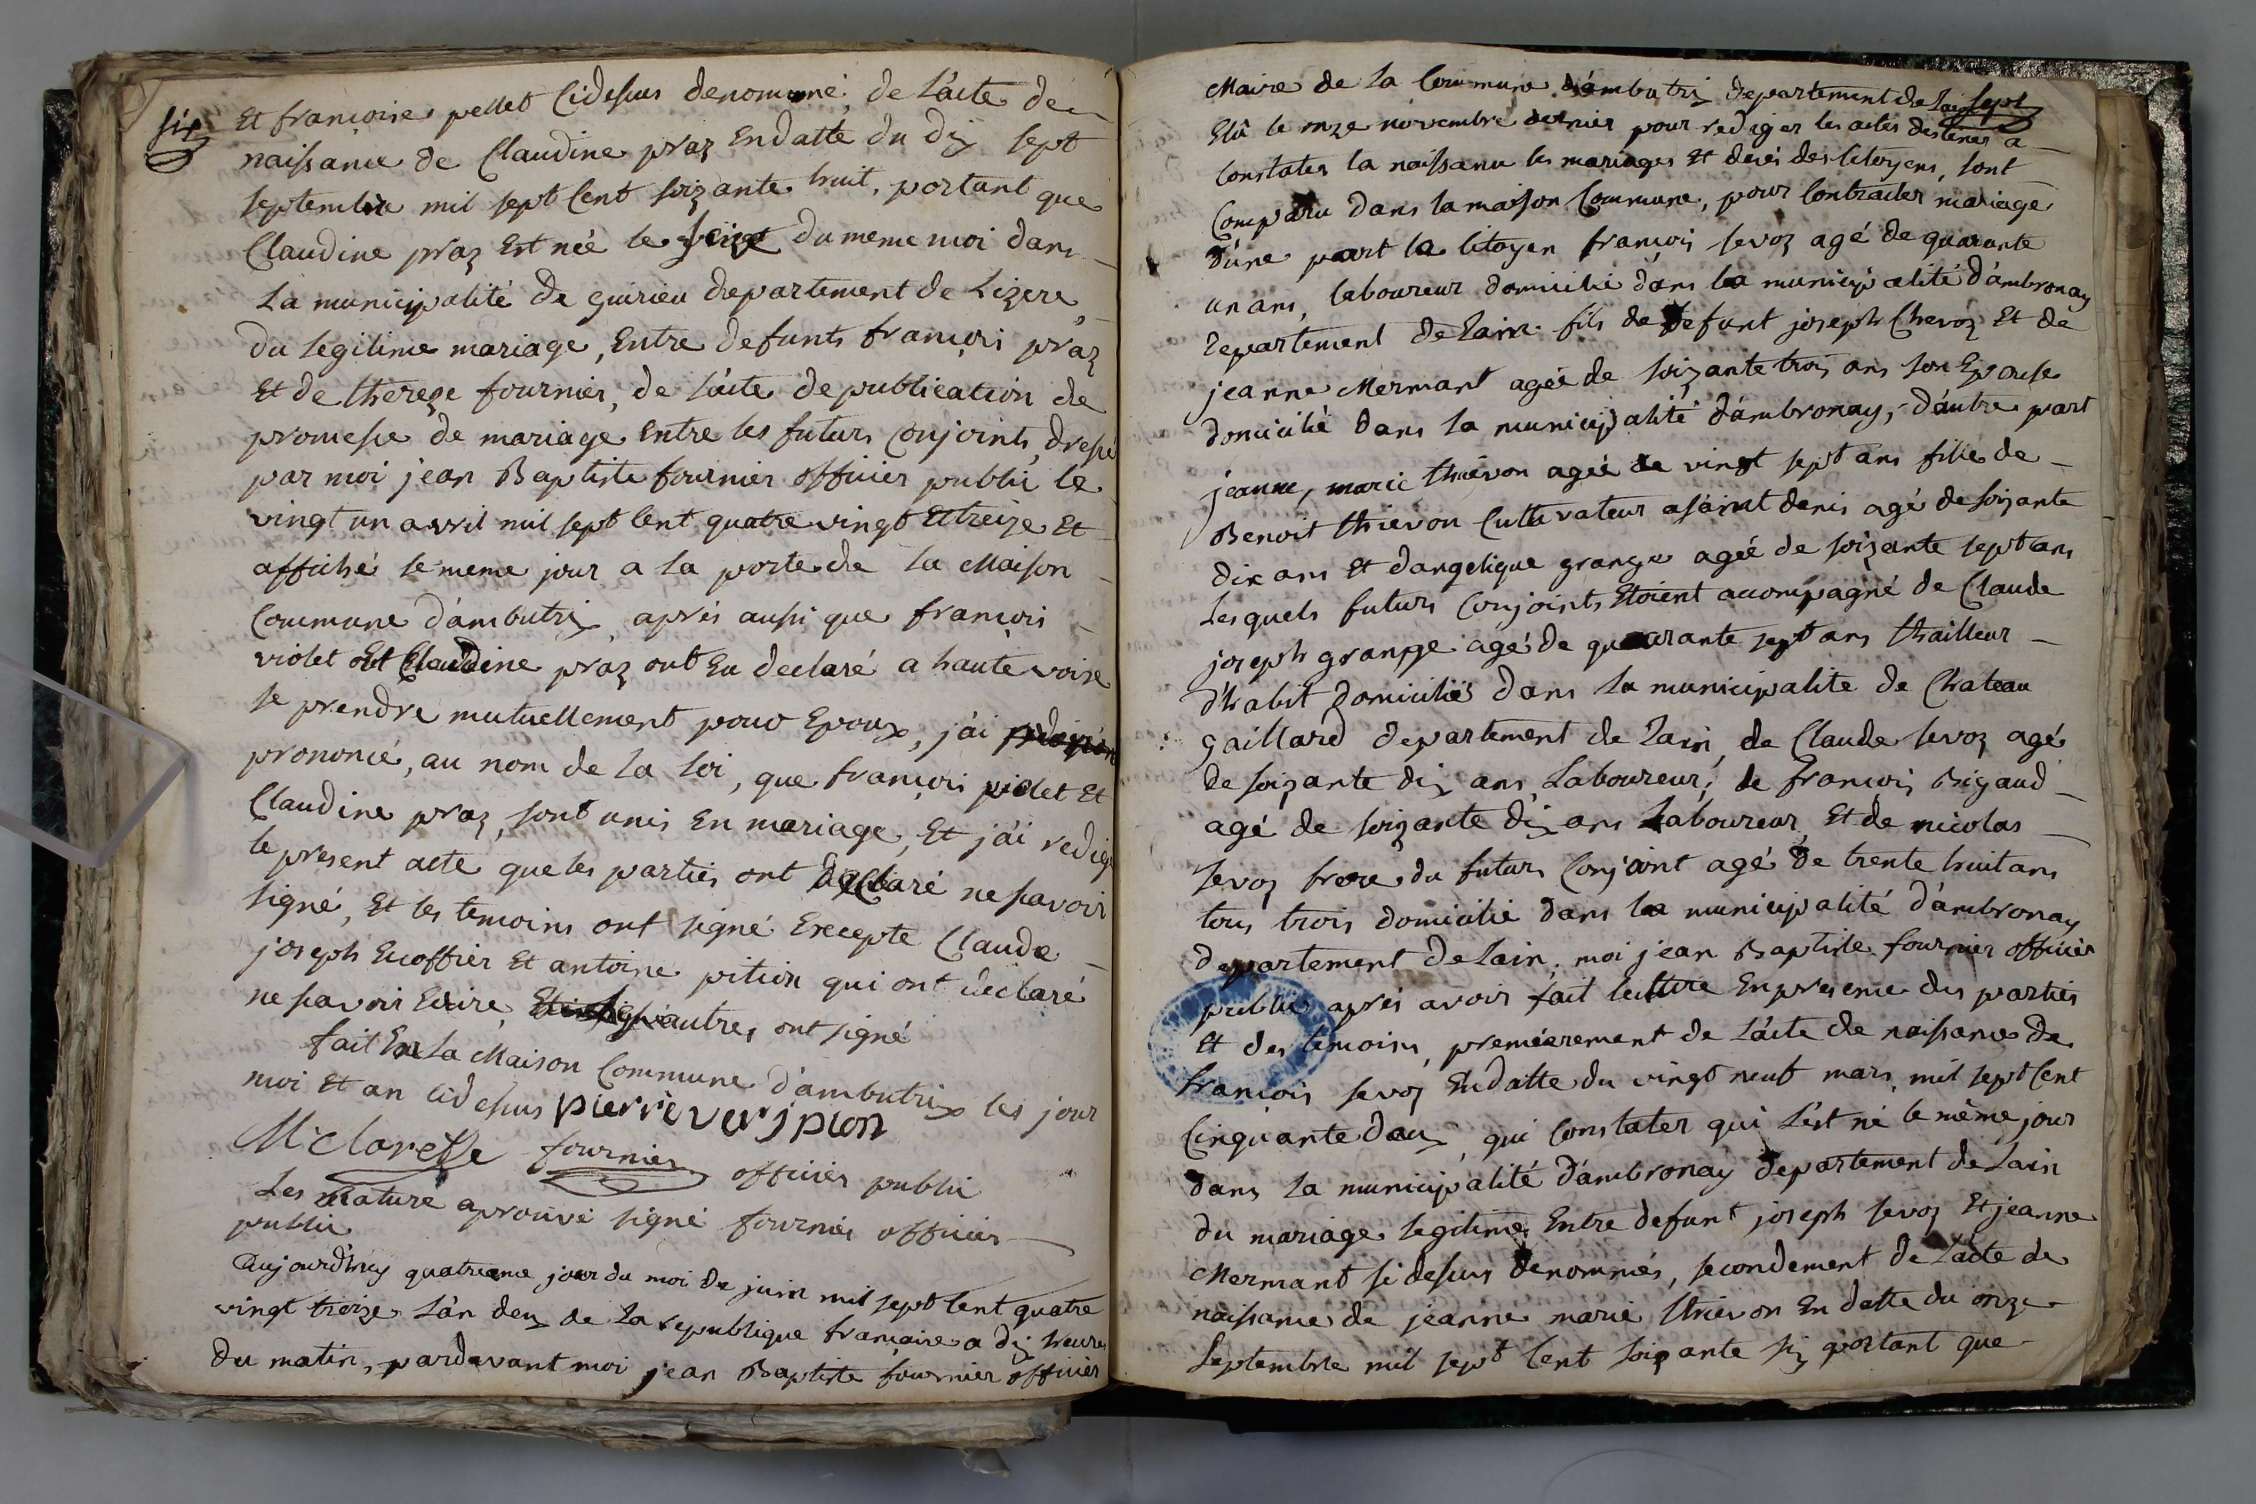 six
Et françoise pellet Cidessus denommé, de L'acte de
naissance de Claudine praz Endatte du dix sept
septembre mil sept Cent soizante huit, portant que
Claudine praz Est née le seize du meme moi dans
La municipalité de Guirieu departement de Lizere,
du legitime mariage, Entre defunts françois praz
Et de therege fournier, de l'acte de publication de
promesse de mariage Entre les futurs Conjoints, dressé
par moi jean Baptiste fournier officier public le
vingt un avril mil sept Cent quatre vingt Et treize Et
affiché le meme jour a la porte de la Maison
Commune d'ambutrix, aprés aussi que françois
violet Et Claudine praz ont Eu declaré a haute voixe
se prendre mutuellement pour Epoux, j'ai
prononcé, au nom de la loi, que françois violet Et
Claudine praz, sont unis En mariage, Et j'ai redigé
le present acte que les parties ont declaré ne savoir
signé, Et les temoins ont signé Excepte Claude
joseph Ecoffier Et antoine pition qui ont declaré
ne savoir Ecrire, autres ont signé
fait En La Maison Commune d'ambutrix les jour
moi Et an cidessus pierre verjpion
M clarette fournier officier public
Les rature aprouvé signé fournier officier
public
Aujourd'huy quatrieme jour du moi de juin mil sept Cent quatre
vingt treize L'an deux de la republique francaise a dix heures
du matin, pardavant moi jean Baptiste fournier officier
sept
Maire de La Commune d'ambutrix departement de Lain
Elû le onze novembre dernier pour rediger les actes destinés a
Constater la naissance les mariages Et decés des Citoyens, sont
Comparu dans la maison Commune, pour Contracter mariage
d'une part le Citoyen françois sevoz agé de quarante
un ans, laboureur domicilié dans la municipalité d'ambronay
departement de Lain fils de defunt joseph Chevoz Et de
jeanne Mermant agée de soizante trois ans son Epouse
domicilié dans la municipalité d'ambronay, d'autre part
jeanne, marie thievon agée de vingt sept ans fille de
Benoit thievon Cultivateur a saint denis agé de soizante
dix ans Et d'angelique grange agée de soizante sept ans
Lesquels futurs Conjoints Etoient acompagné de Claude
joseph grange agé de quarante sept ans thailleur
d'habit domicilié dans la municipalite de Chateau
gaillard departement de Lain, de Claude sevoz agé
de soizante dix ans, Laboureur, de françois Rigaud
agé de soizante dix ans Laboureur, Et de nicolas
sevoz frere du futur Conjoint agé de trente huit ans
tous trois domicilié dans la municipalité d'ambronay
departement de Lain, moi jean Baptiste fournier officier
public aprés avoir fait lecture En presence des parties
Et des temoins, premierement de L'acte de naissance de
francois sevoz Endatte du vingt neuf mars mil sept Cent
Cinquante deux, qui Constater qui L'est né le même jour
dans la municipalité d'ambronay departement de Lain
du mariage legitime Entre defunt joseph sevoz Et jeanne
Mermant si dessus denommés, secondement de L'acte de
naissance de jeanne marie thievon En datte du onze
Septembre mil sept Cent soizante six portant que